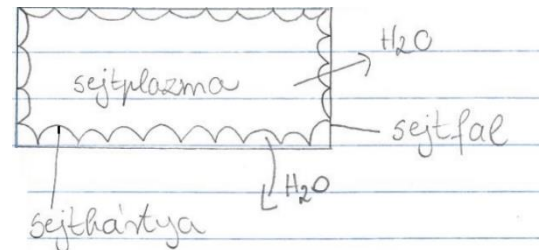 H2O
sejtplazma
sejtfal
H2O
sejthártya